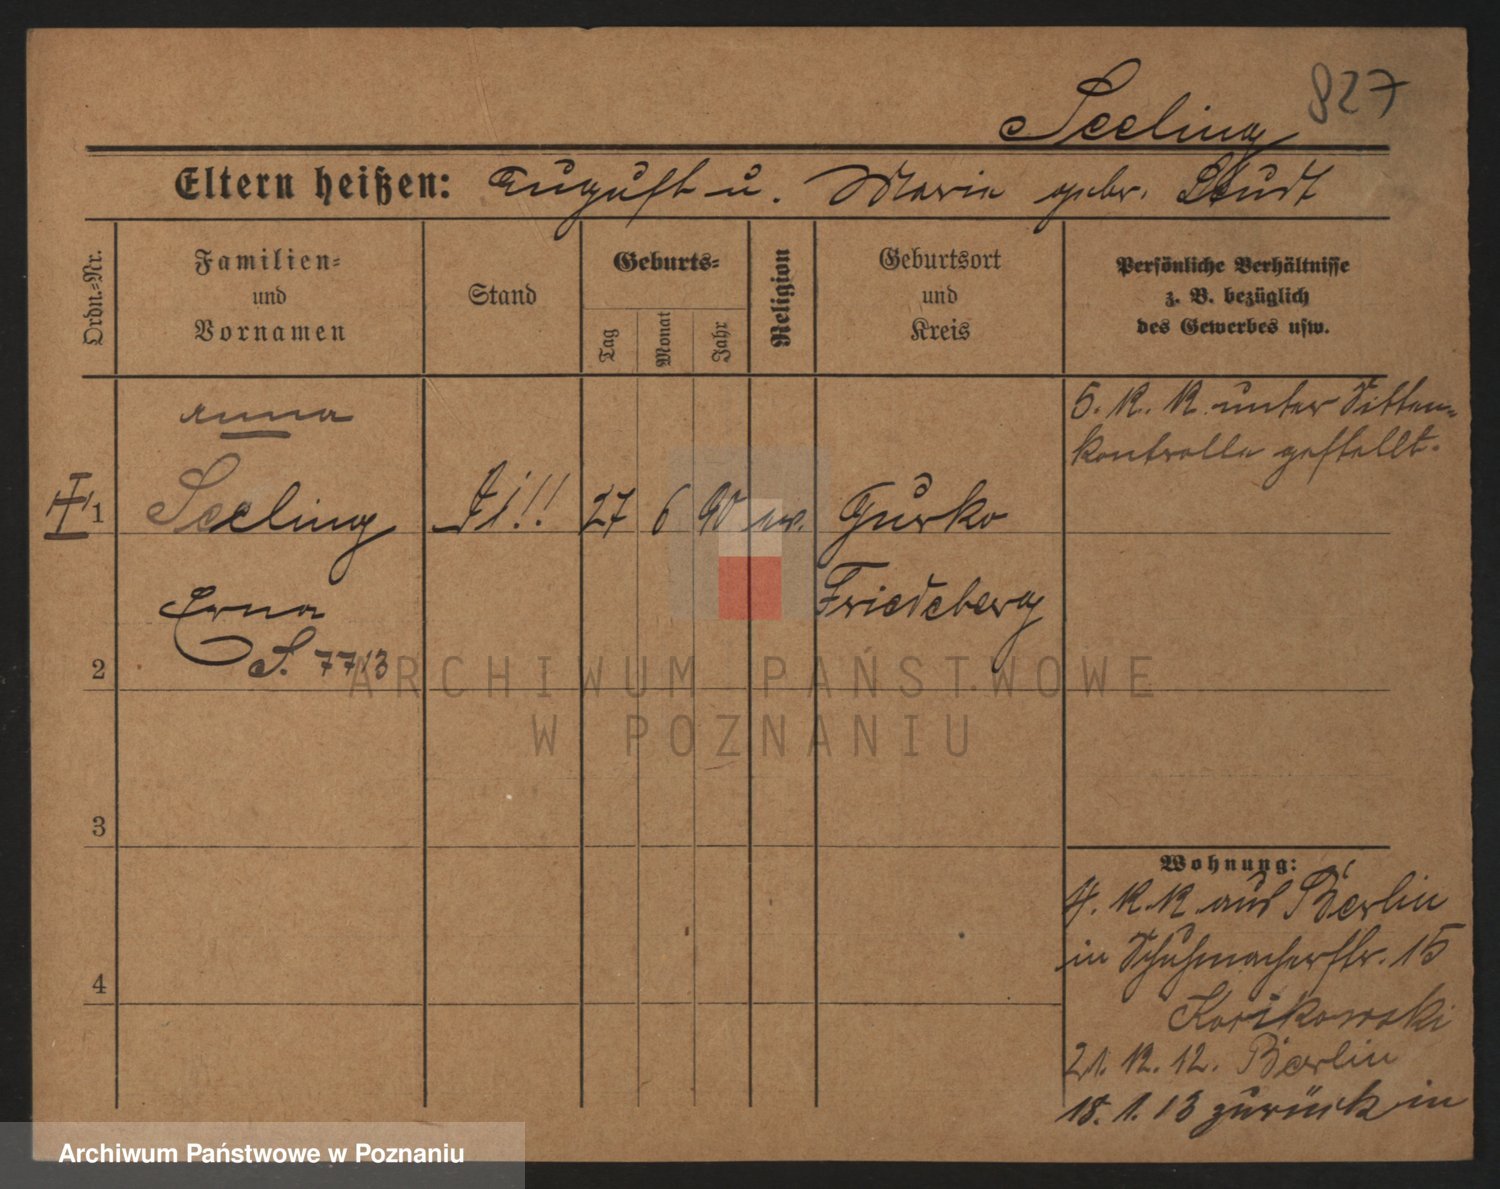 Seeling
827
Eltern heißen: August u. Maria gebr. Studt
Ordn.-Nr.
Familien-
und
Vornamen
Stand
Geburts-
Tag
Monat
Jahr
Religion
Geburtsort
und
Kreis
Persönliche Verhältnisse
z. B. bezüglich
des Gewerbes usw.
Anna
5. 12. 12. unter Sitten-
kontrolle gestellt.
1 Seeling 27 6 90 ev. Gurko
Erna Friedeberg
S. 77/13
2
3
4
Wohnung:
4. 12. 12. aus Berlin
in Schuhmacherstr. 15
21. 12. 12. Berlin
18. 1. 13 zurück in
ARCHIWUM PAŃSTWOWE
W POZNANIU
Archiwum Państwowe w Poznaniu